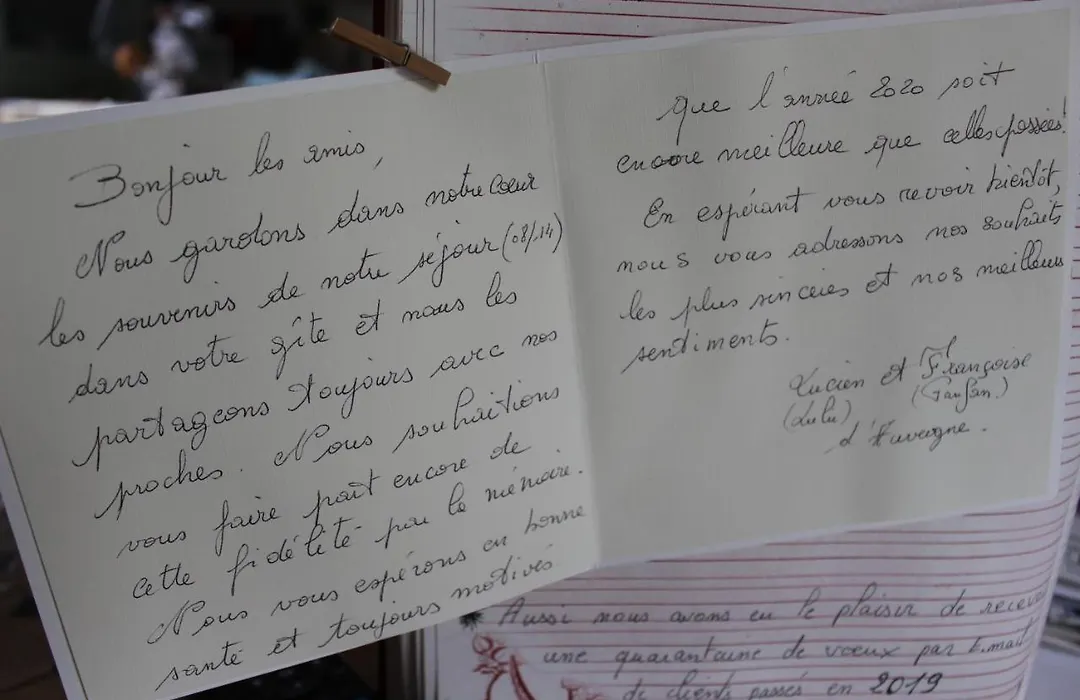 Bonjour les amis,
Nous gardons dans notre coeur
les souvenirs de notre séjour (08/14)
dans votre gîte et nous les
partageons toujours avec nos
proches. Nous souhaitions
vous faire part encore de
cette fidélité par la mémoire.
Nous vous espérons en bonne
santé et toujours motivés
que l'année 2020 soit
encore meilleure que celles passées!
En espérant vous revoir bientôt,
nous vous adressons nos souhaits
les plus sincères et nos meilleurs
sentiments.
Lucien et Françoise
(Lulu) (Fanfan)
d'Auvergne.
Aussi nous avons eu le plaisir de recev
une quarantaine de voeux par E.mail
de clients passés en 2019